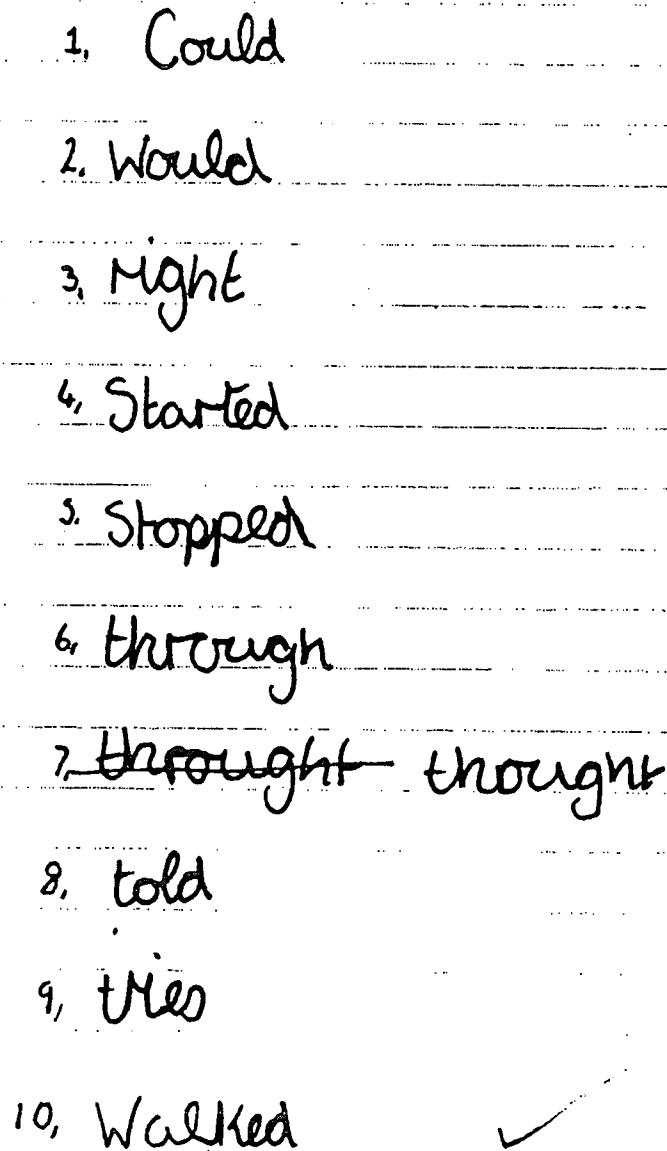 1, Could
2. Would
3, right
4, Started
5. Stopped
6, through
7, throught thought
8, told
9, tries
10, Walked